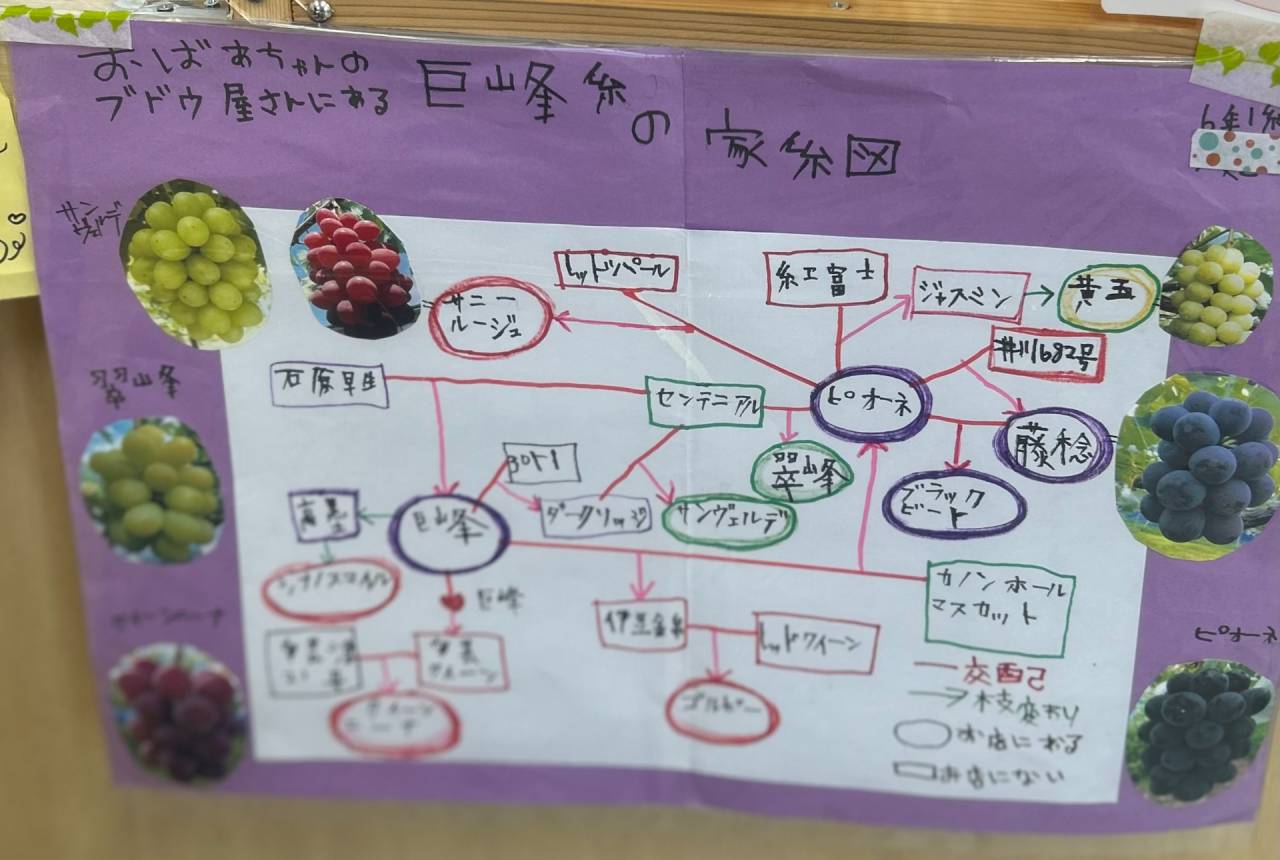 おばあちゃんの
ブドウ屋さんにある
巨峰糸の家糸図
6年1組
サン
ヴェルデ
サニー
ルージュ
レッドパール
紅富士
ジャスミン
黄玉
井川682号
石原早生
センテニアル
ピオーネ
藤稔
翠峰
翠峰
ブラック
ビート
301-1
ダークリッジ
サンヴェルデ
巨峰
高墨
シナノスマイル
カノンホール
マスカット
巨峰
伊豆錦
レッドクイーン
ゴルビー
クイーンニーナ
ピオーネ
交配
枝変わり
お店にある
お店にない